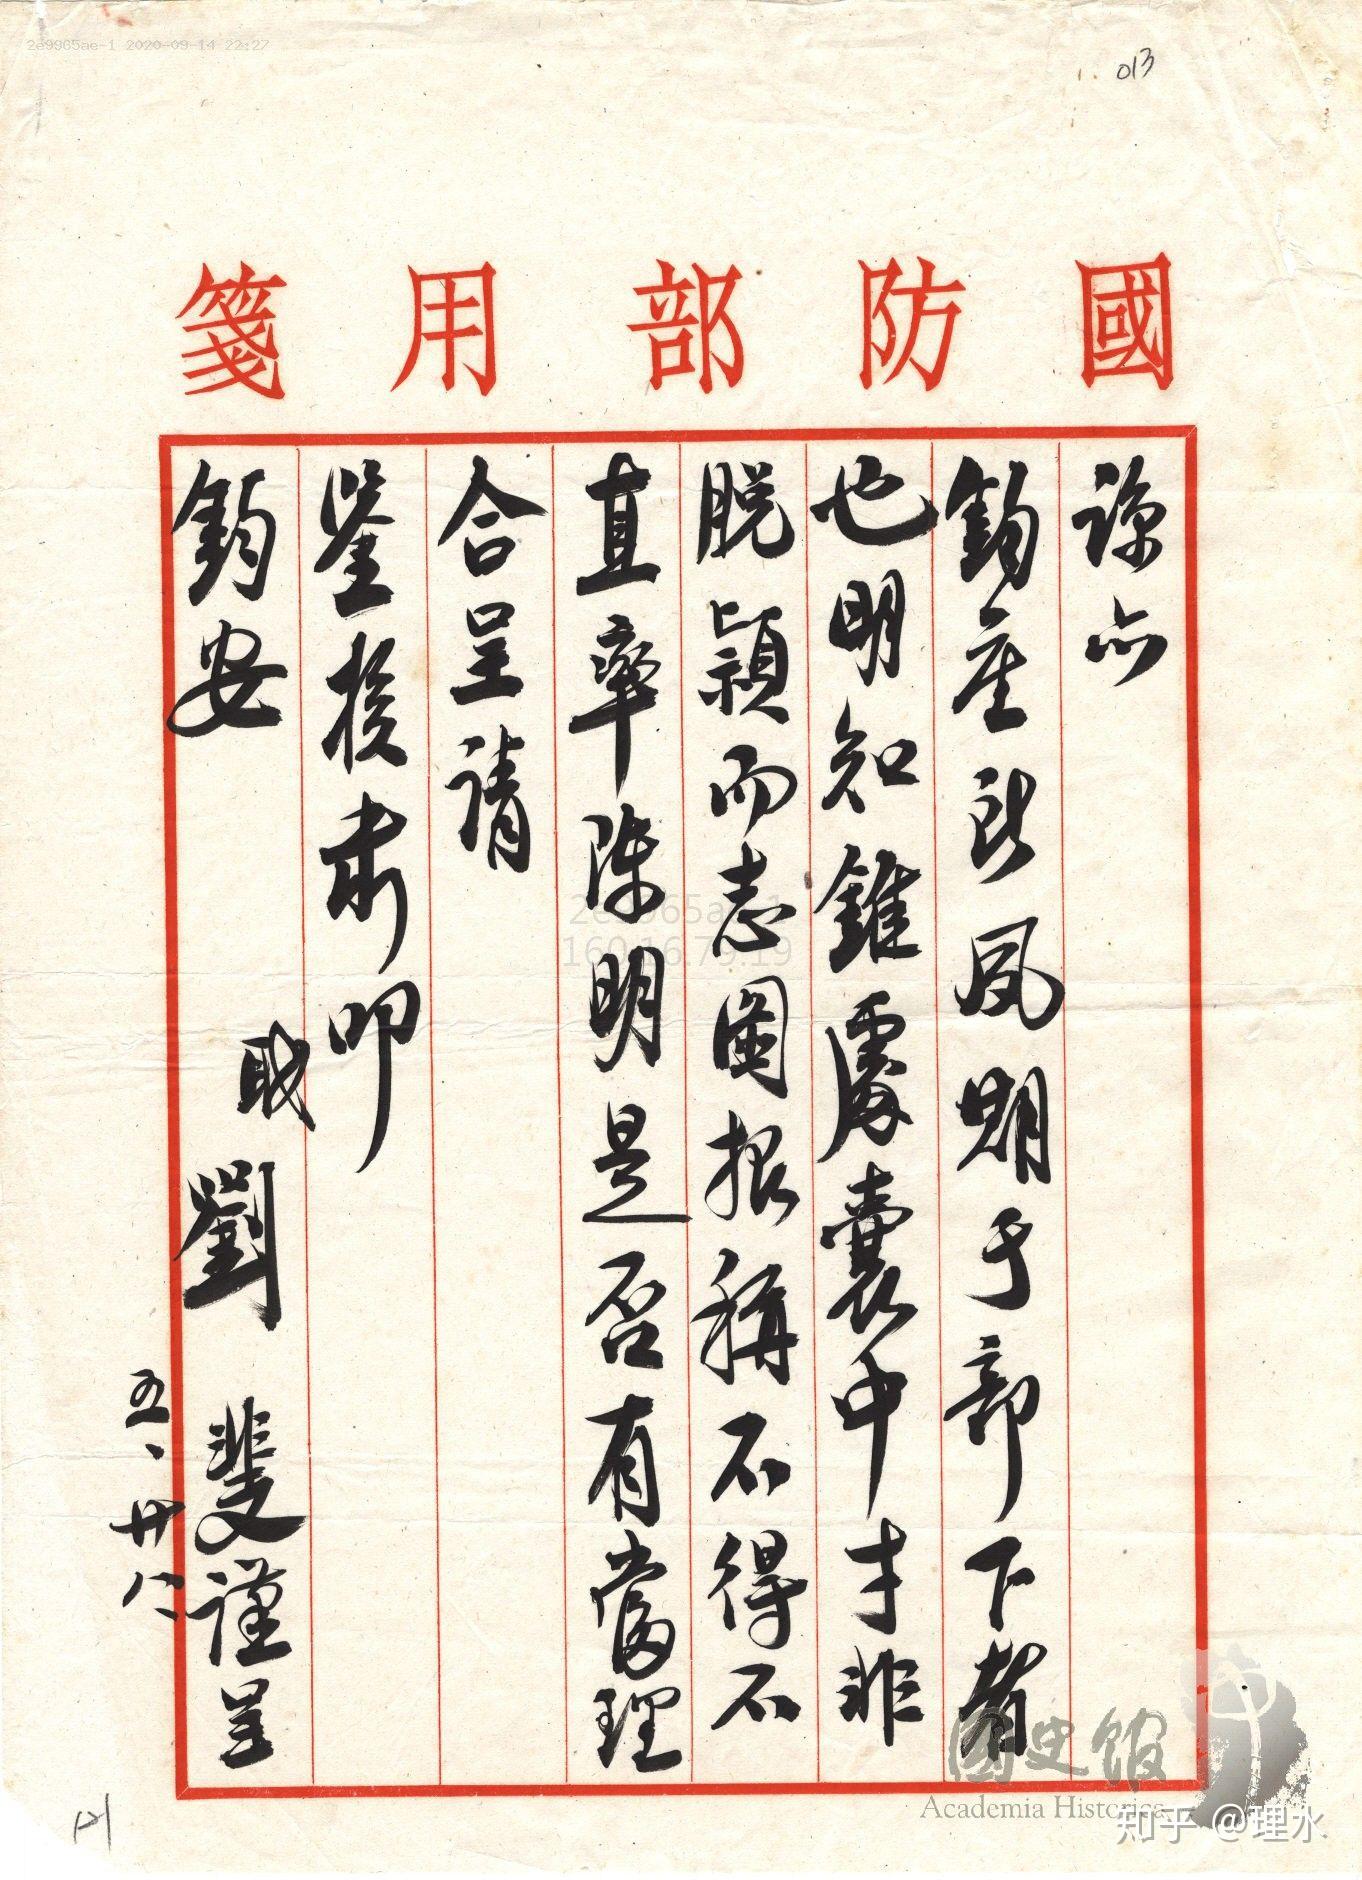 2e9965ae-1 2020-09-14 22:27
013
國防部用箋
諒亦
鈞座所夙期于部下者
也明知錐處囊中才非
脱穎而志圖報稱不得不
直率陳明是否有當理
合呈請
鑒核肅叩
鈞安
職劉斐謹呈
五、廿八
2e9965ae-1
160.16.79.19
國史館
Academia Historica
知乎 @理水